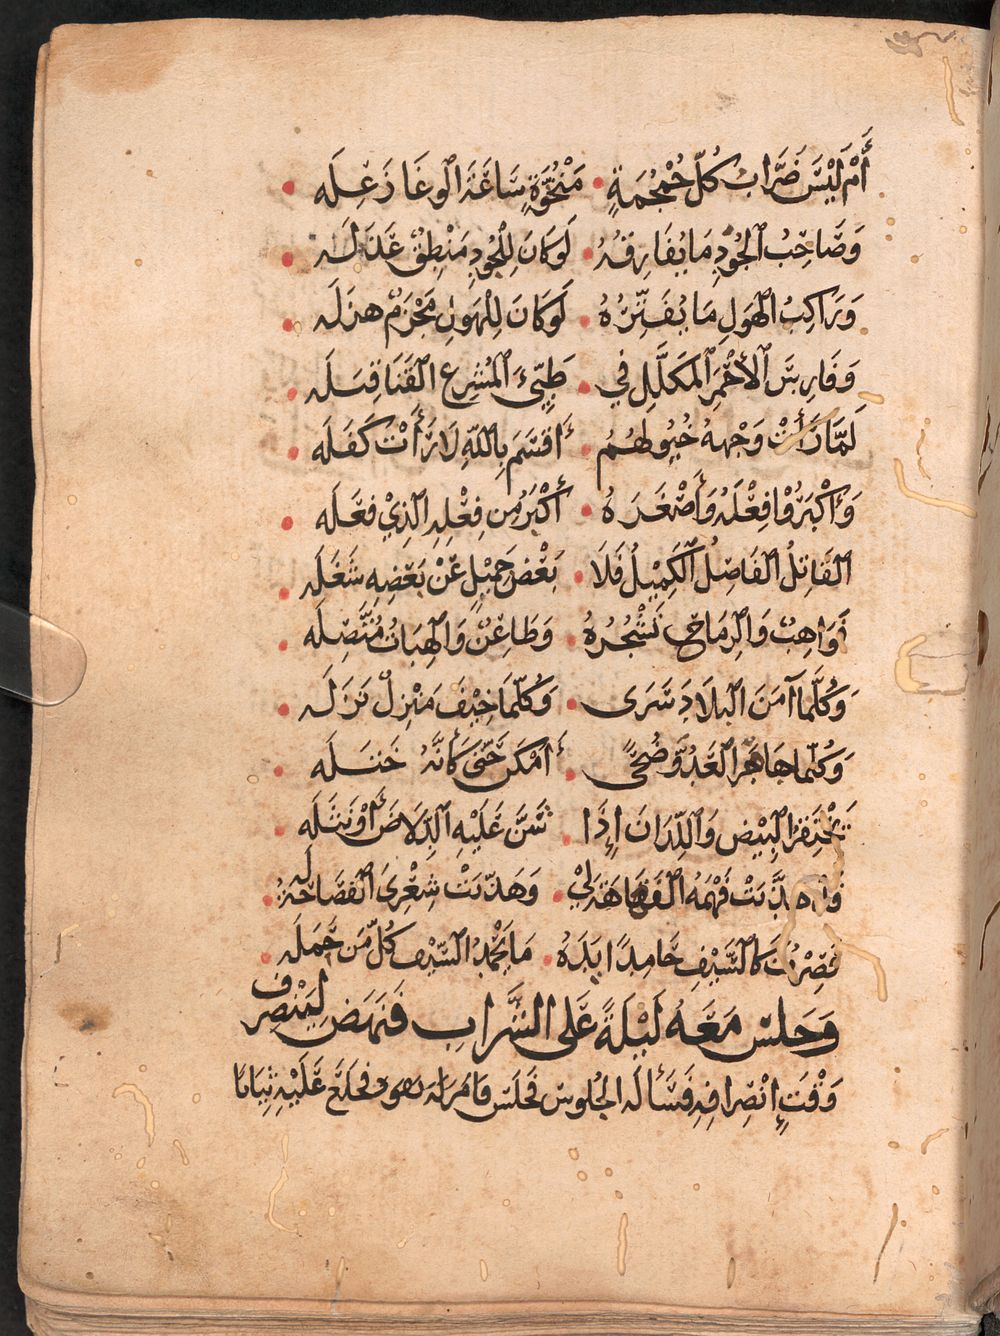 أَمْ لَيْسَ ضَرَّابُ كُلِّ جُمْجُمَةٍ • مَنْخُوَّةٍ سَاعَةَ الوَغَا زَعِلَه •
وَصَاحِبُ الجُودِ مَا يُفَارِقُهُ • لَوكَانَ لِلجُودِ مَنْطِقٌ عَذَلَه •
وَرَاكِبُ الهَولِ مَا يُفَتِّرُهُ • لَوكَانَ لِلهَولِ مَحْزَمٌ هزَلَه •
وَفَارِسَ الأحْمَرِ المكَلَّلِ في • طَيِّئَ المُشْرِعِ القَنَا قِبَلَه •
لَمَّا رَأَتْ وَجْههُ خُيُولهُمُ • أَقْسَمَ بِاللَّهِ لَا رَأَتْ كَفَلَه •
وَأكْبَرُوْا فِعْلَهُ وَأصْغَرَهُ • أكْبَرُ مِن فِعْلِهِ الَّذِيْ فَعَلَه •
القَاتِلُ الفَاصِلُ الكَمِيْلُ فَلَا • بَعْضُ جَمِيْلٍ عَنْ بَعْضِهِ شَغَلَه •
فَوَاهِبٌ وَالرِّمَاحُ تَشْجُرُهُ • وَطَاعِنٌ وَالهِبَاتُ مُتَّصِلَه •
وَكُلَّمَا آمَنَ البِلَادَ سَرَى • وَكُلَّمَا خِيْفَ مَنْزِلٌ نَزَلَه •
وَكُلَّمَا جَاهَرَ العَدُوَّ ضُحًى • أَمْكَنَ حَتَّى كَأَنَّهُ خَتَلَه •
يَحْتَقِرُ البِيْضَ وَاللِّدَانَ إِذَا • شَنَّ عَلَيْهِ الدِّلَاصَ أَوْ نَثَلَه •
قَدْ هَذَّبَتْ فَهْمَهُ الفَقَاهَةُ لِيْ • وَهَذَّبَتْ شِعْرِيَ الفَصَاحَةُ لَه •
فَصِرْتُ كَالسَّيْفِ حَامِدًا يَدَهُ • مَا يَحْمَدُ السَّيْفُ كُلَّ مَن حَمَلَه •
وَجَلسَ مَعَهُ لَيْلَةً عَلى الشَّرَابِ فَنَهَضَ لِيَنْصَرِفَ
وَقْتَ إِنْصِرَافِهِ فَسَأَلَه الجُلوسَ فَجَلَسَ فَامَرَ لَه فخَلَعَ عَلَيْهِ ثِيَابًا